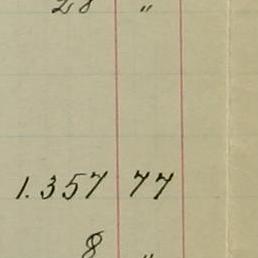 28 "
1.357 77
8 "